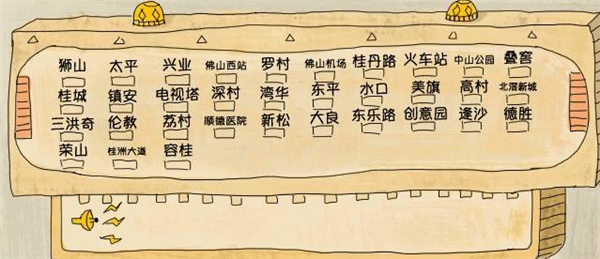 狮山 太平 兴业 佛山西站 罗村 佛山机场 桂丹路 火车站 中山公园 叠窖
桂城 镇安 电视塔 深村 湾华 东平 水口 美旗 高村 北滘新城
三洪奇 伦教 荔村 顺德医院 新松 大良 东乐路 创意园 逢沙 德胜
荣山 桂洲大道 容桂